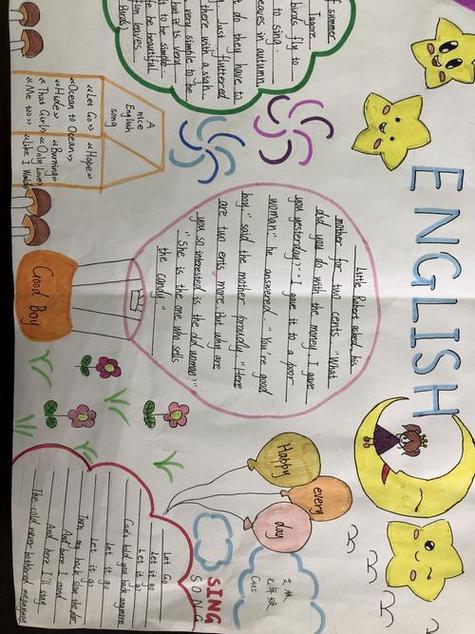 ENGLISH
f summer
Tagore
birds fly to
to sing.
leaves in autumn
do they have to
Just fluttered
there with a sigh.
very simple to be
but it is very
to be simple.
be beautiful
leaves
Birds
A
nice
English
song
«Let Go» «Hope»
«Ocean to Ocean»
«Hude» «Burning»
«That Girl» «Only Love»
Little Robert asked his
mother for two cents. "What
did you do with the money I gave
you yesterday?" "I gave it to a poor
woman," he answered. "You're good
boy," said the mother proudly. "Here
are two cents more. But why are
you so interested in the old woman?"
"She is the one who sells
the candy."
Good Boy
Happy
every
day
SING
SONG
Let Go
Let it go
Let it go
Can't hold you back anymore
Let it go
Let it go
Turn my back slam the door
And here I stand
And here I'll stay
The cold never bothered me anyway